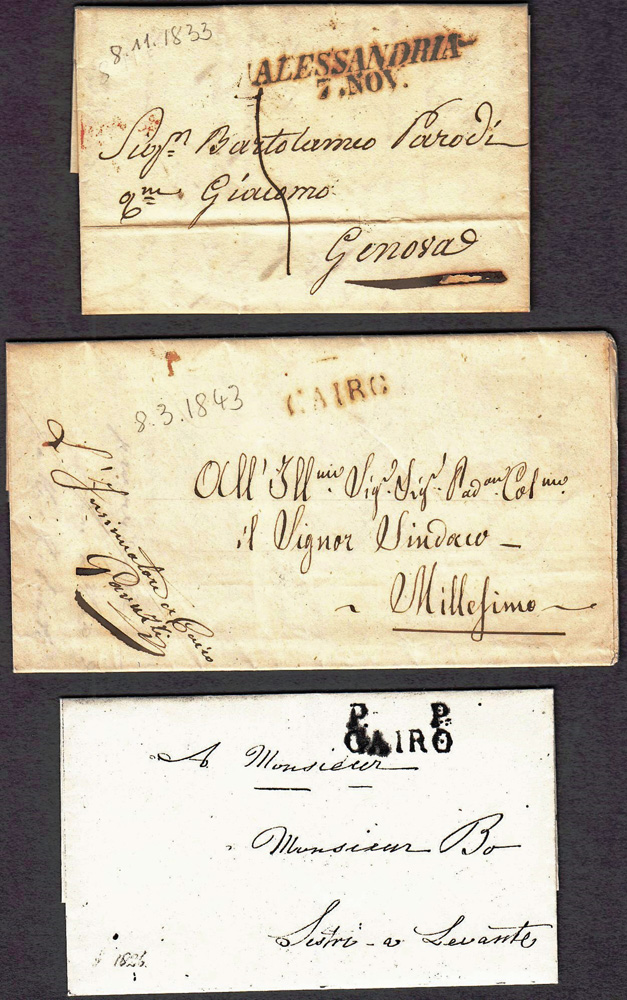 8.11.1833
ALESSANDRIA
7. NOV.
Sigr.n Bartolameo Parodi
qm Giacomo
Genova
8.3.1843
CAIRO
All' Illmo Sigr. Sigr. Padon Colmo
il Signor Sindaco
Millesimo
L'Insinuatore di Cairo
P. P.
CAIRO
A Monsieur
Monsieur Bo
Sestri a Levante
1826.